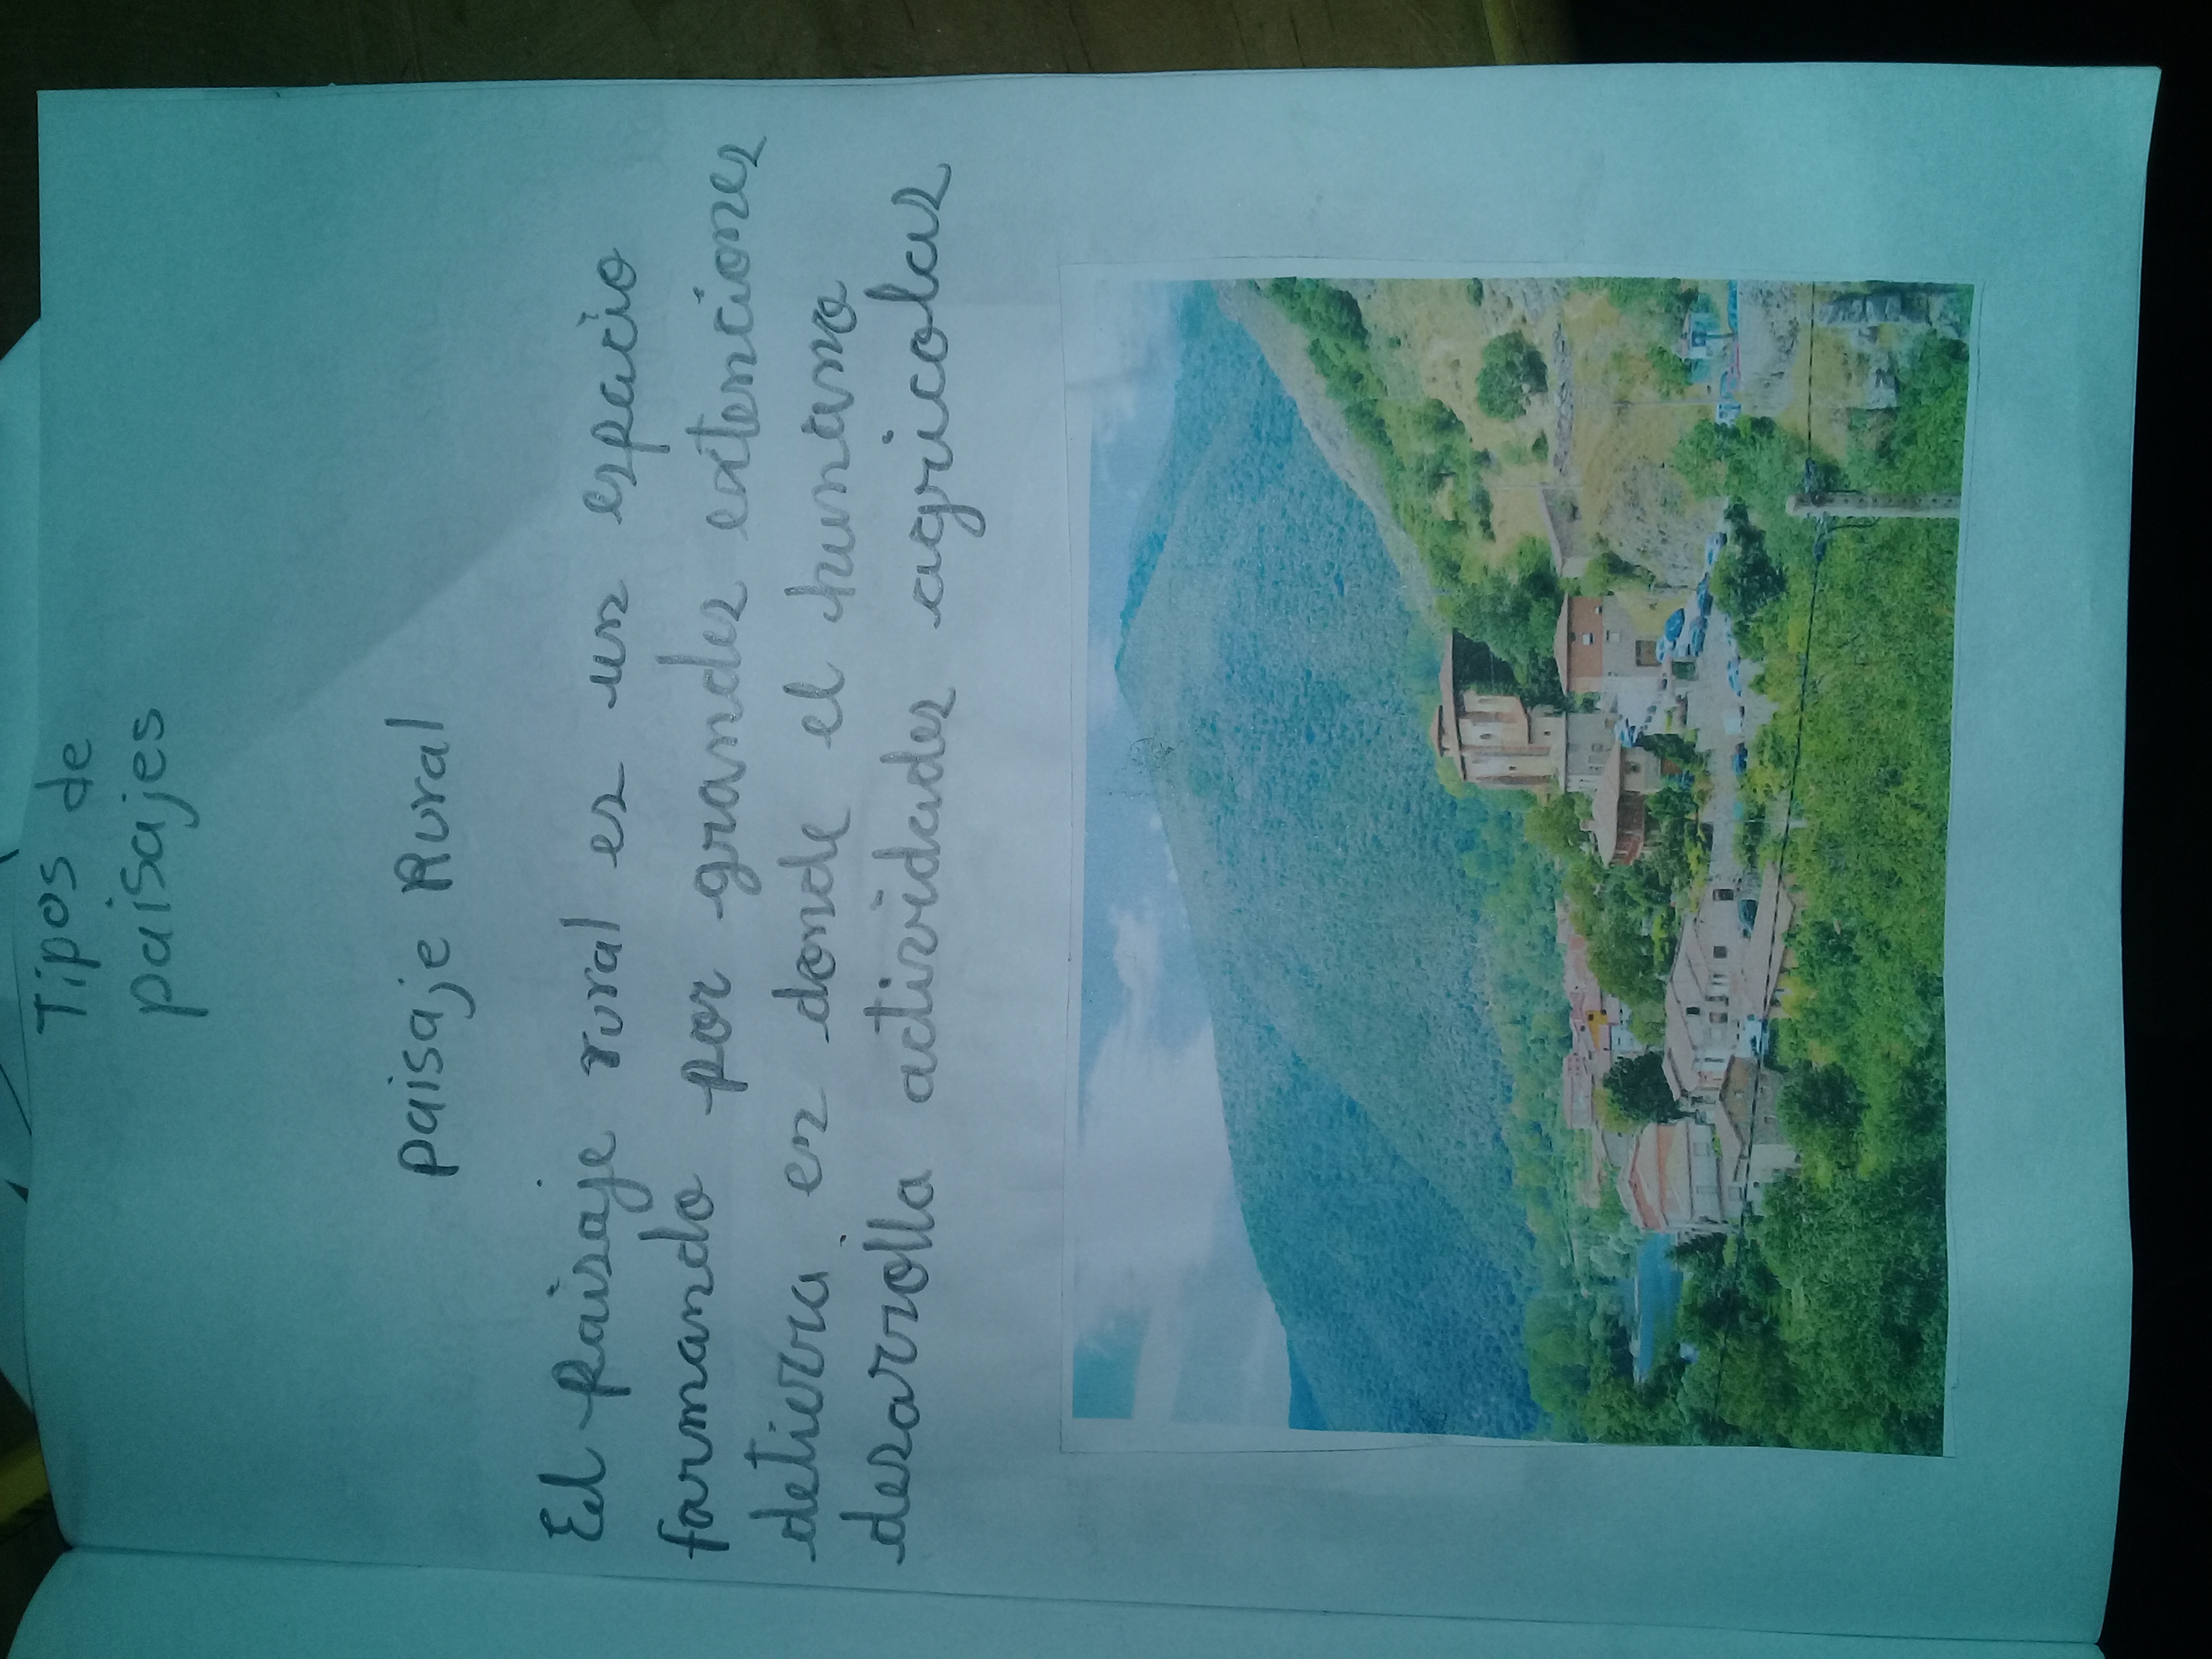 Tipos de
paisajes
paisaje Rural
El paisaje rural es un espacio
formando por grandes extenciones
detierra en donde el humano
desarrolla actividades agricolas